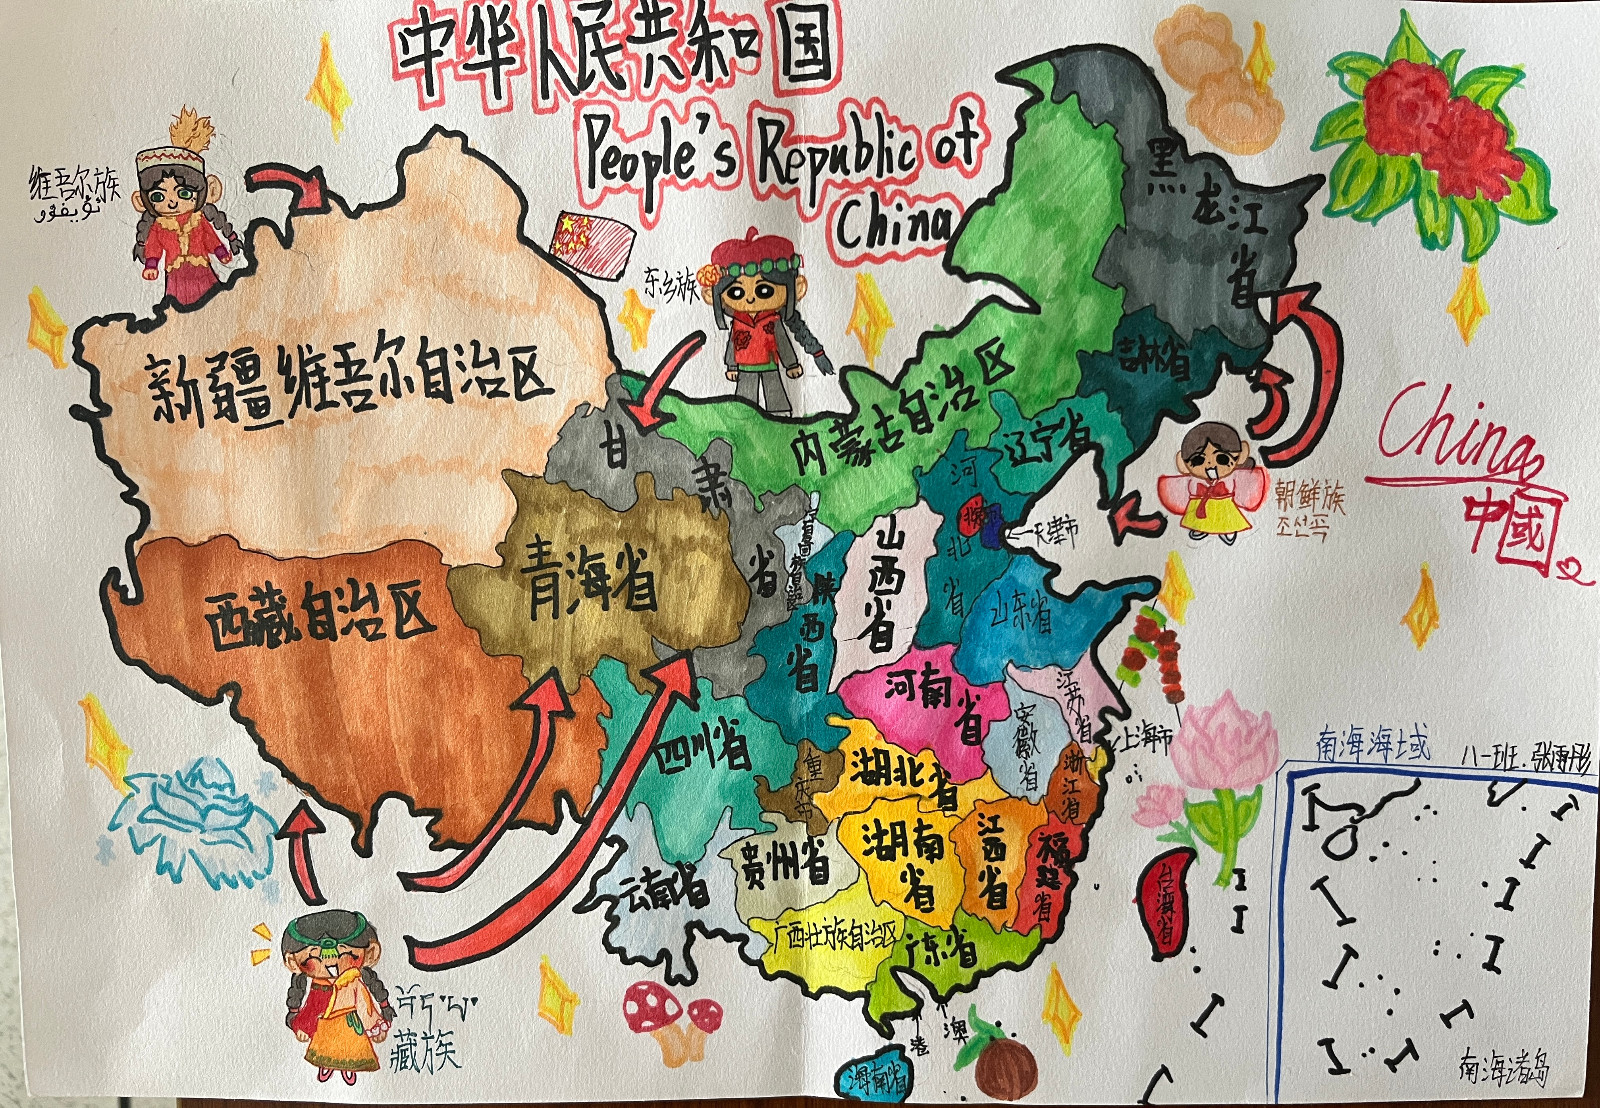 中华人民共和国
People's Republic of
China
维吾尔族
ئۇيغۇر
东乡族
黑龙江省
吉林省
辽宁省
内蒙古自治区
新疆维吾尔自治区
甘肃省
青海省
西藏自治区
河北省
北京市
天津市
山西省
陕西省
山东省
河南省
江苏省
安徽省
上海市
浙江省
四川省
重庆市
湖北省
湖南省
江西省
福建省
贵州省
云南省
广西壮族自治区
广东省
台湾省
海南省
港
澳
朝鲜族
조선족
China
中國
藏族
南海海域
八一班
南海诸岛